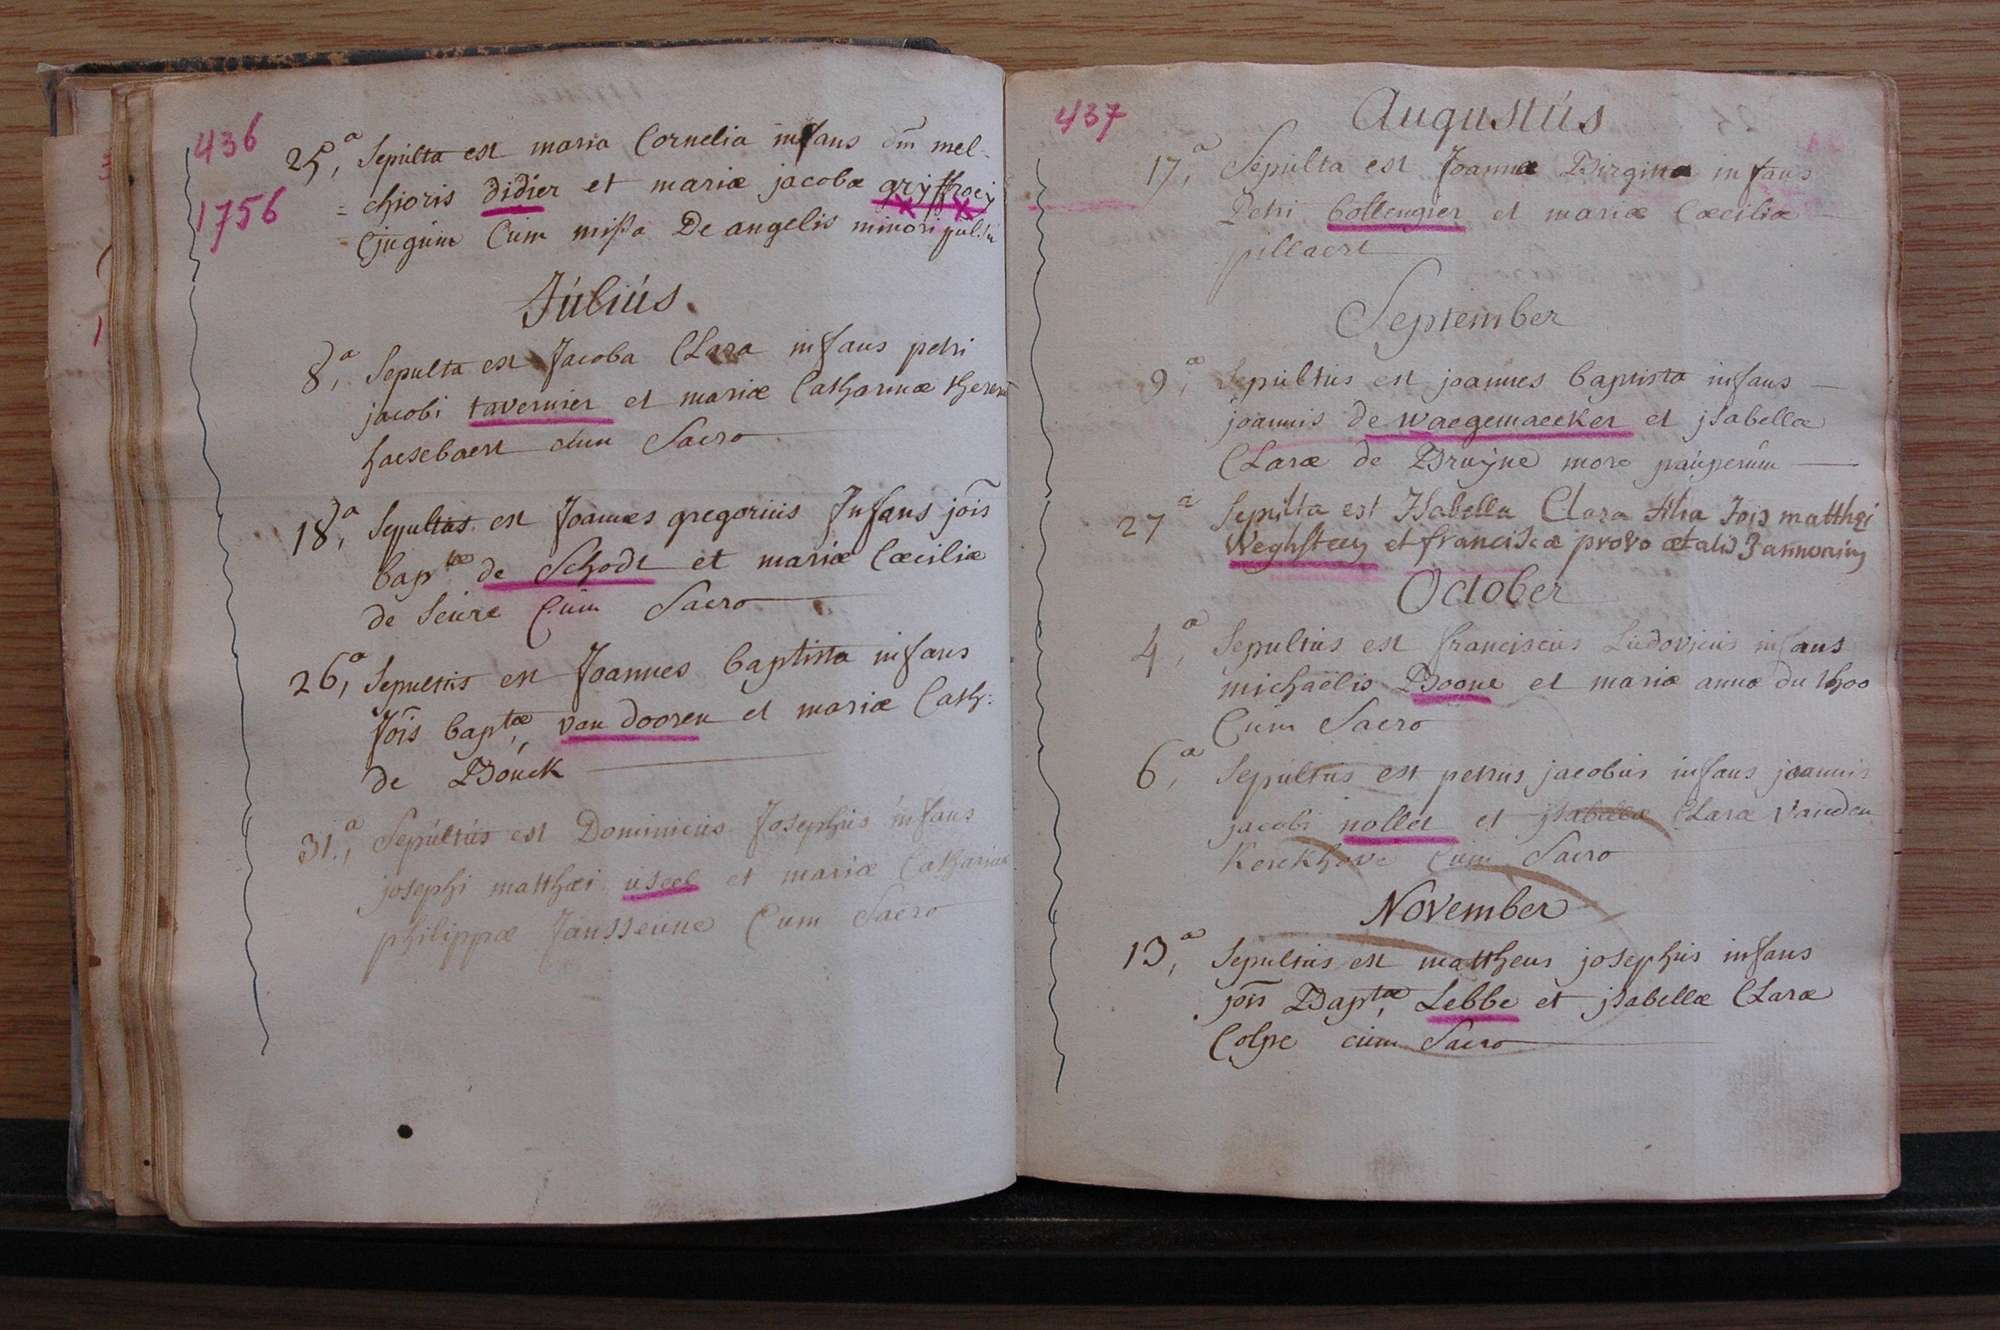 436
1756
25,a Sepulta est maria Cornelia infans dni mel-
= chioris didier et mariæ jacobæ
= Cjugum Cum missa De angelis minori
Július
8,a Sepulta est Jacoba Clara infans petri
jacobi tavernier et mariæ Catharinæ
haesebaert cum Sacro
18,a Sepultus est Joannes gregorius Infans jois
baptæ de Schodt et mariæ Cæciliæ
de Seure Cum Sacro
26,a Sepultus est Joannes baptista infans
Jois baptæ, van dooren et mariæ Cath:
de Bouck
31,a Sepúltús est Dominicus Josephus infans
josephi matthæi useel et mariæ Catharinæ
philippæ Jansseune Cum Sacro
437
Augustús
17,a Sepulta est Joanna Virginia infans
Petri bollengier et mariæ Cæciliæ
pillaert
September
9,a Sepultus est joannes baptista infans
joannis de waegemaecker et jsabellæ
Claræ de Bruyne more pauperum
27a Sepulta est Isabella Clara filia Jois matthæi
Weghsteen et franciscæ provo ætatis 3 annorum
October
4,a Sepultus est franciscus Ludovicus infans
michaëlis Boone et mariæ annæ du thoo
Cum Sacro
6,a Sepultus est petrus jacobus infans joannis
jacobi nollet et jsabellæ Claræ vanden
Kerckhove Cum Sacro
November
13,a Sepultus est mattheus josephus infans
jois Baptæ, Lebbe et jsabellæ Claræ
Colpe cum Sacro